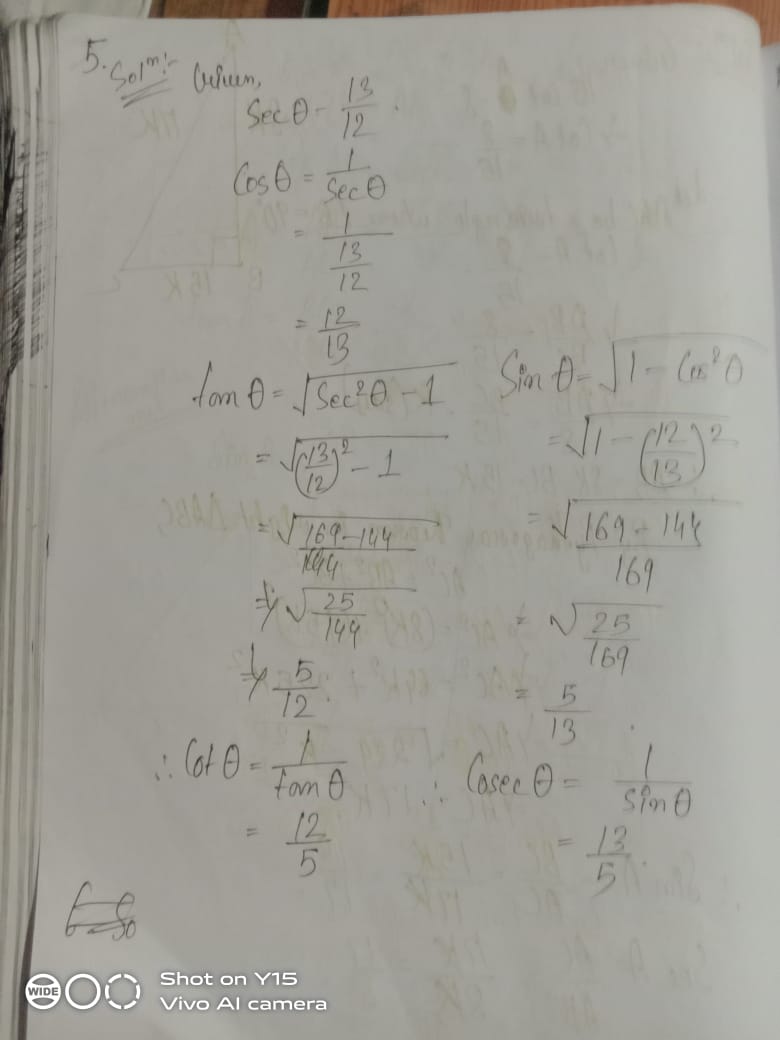 5. Solⁿ:- Given,
Sec θ = 13/12.
Cos θ = 1/Sec θ
= 1/(13/12)
= 12/13
tan θ = √(Sec²θ - 1)
= √((13/12)² - 1)
= √((169-144)/144)
= √(25/144)
= 5/12.
∴ Cot θ = 1/tan θ
= 12/5
Sin θ = √(1 - Cos²θ)
= √(1 - (12/13)²)
= √((169 - 144)/169)
= √(25/169)
= 5/13.
∴ Cosec θ = 1/sin θ
= 13/5.
WIDE
Shot on Y15
Vivo AI camera